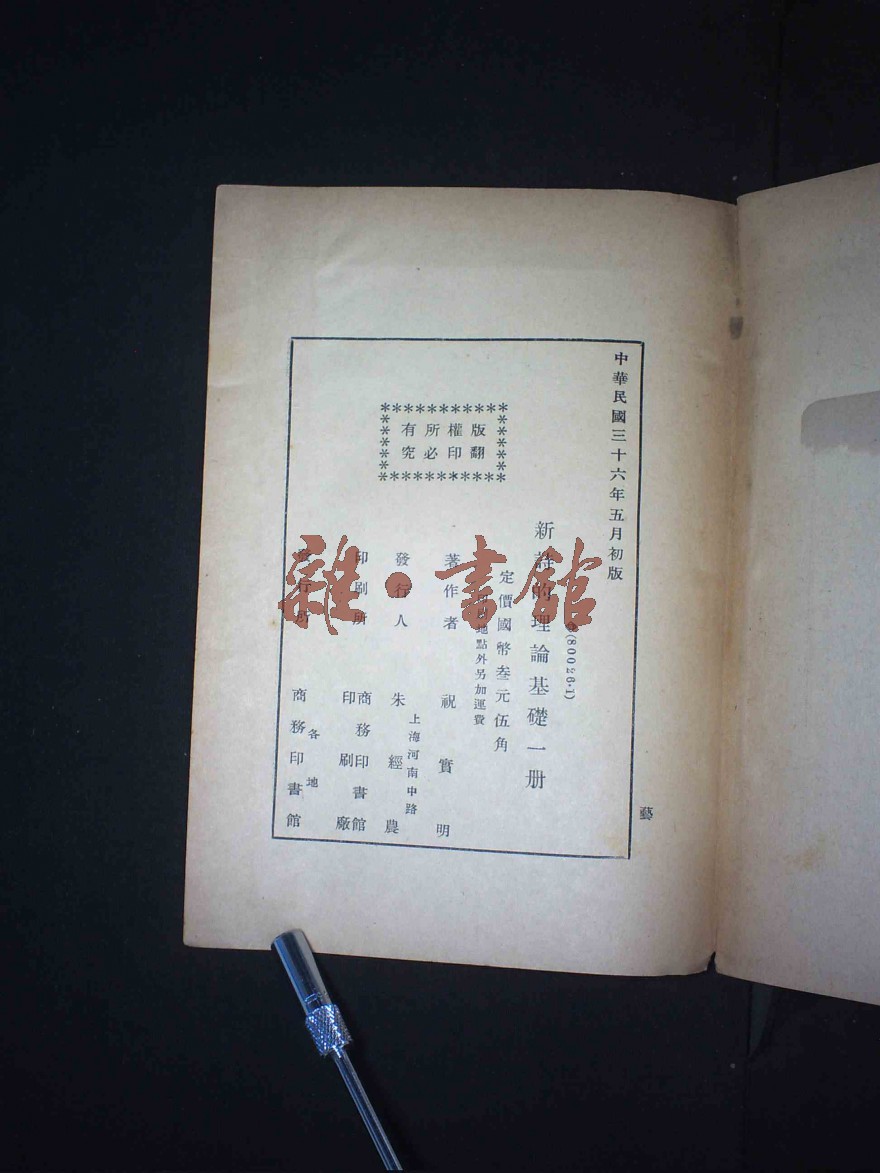 中華民國三十六年五月初版
(80026·1)
新詩的理論基礎一册
定價國幣叁元伍角
地點外另加運費
著作者 祝實明
上海河南中路
發行人 朱經農
印刷所 商務印書館印刷廠
發行所 各地商務印書館
版權所有
翻印必究
藝
雜·書館